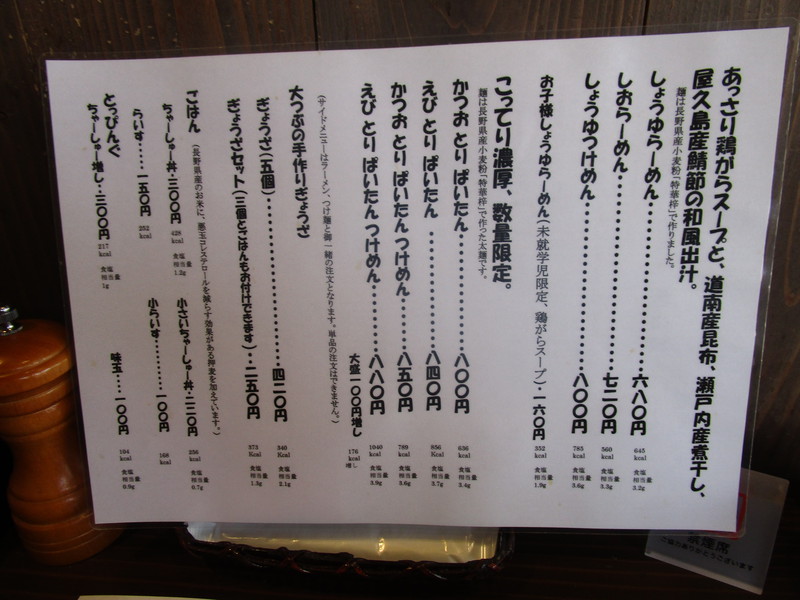 あっさり鶏がらスープと、道南産昆布、瀬戸内産煮干し、
屋久島産鯖節の和風出汁。
麺は長野県産小麦粉「特華梓」で作りました。
しょうゆらーめん・・・・・・・・・・六八〇円 645 kcal 食塩相当量 3.2g
しおらーめん・・・・・・・・・・七二〇円 560 kcal 食塩相当量 3.3g
しょうゆつけめん・・・・・・・・・・八〇〇円 785 kcal 食塩相当量 3.6g
お子様しょうゆらーめん(未就学児限定、鶏がらスープ)・一六〇円 352 kcal 食塩相当量 1.9g
こってり濃厚、数量限定。
麺は長野県産小麦粉「特華梓」で作った太麺です。
かつお とり ぱいたん・・・・・・・・・・八〇〇円 636 kcal 食塩相当量 3.4g
えび とり ぱいたん・・・・・・・・・・八四〇円 856 kcal 食塩相当量 3.7g
かつお とり ぱいたん つけめん・・・・・・八五〇円 789 kcal 食塩相当量 3.6g
えび とり ぱいたん つけめん・・・・・・八八〇円 1040 kcal 食塩相当量 3.9g
大盛一〇〇円増し 176 kcal 増し
(サイドメニューはラーメン、つけ麺と御一緒の注文となります。単品の注文はできません。)
大つぶの手作りぎょうざ
ぎょうざ(五個)・・・・・・・・・・四二〇円 340 Kcal 食塩相当量 2.1g
ぎょうざセット(三個とごはんもお付けできます)・二五〇円 373 Kcal 食塩相当量 1.3g
ごはん (長野県産のお米に、悪玉コレステロールを減らす効果がある押麦を加えています。)
ちゃーしゅー丼・三〇〇円 428 kcal 食塩相当量 1.2g
小さいちゃーしゅー丼・二二〇円 236 kcal 食塩相当量 0.7g
らいす・・・・・一五〇円 252 kcal
小らいす・・・・・・・・一〇〇円 168 kcal
とっぴんぐ
ちゃーしゅー増し・三〇〇円 217 kcal 食塩相当量 1g
味玉・・・・一〇〇円 104 kcal 食塩相当量 0.9g
禁煙席
ご協力ありがとうございます